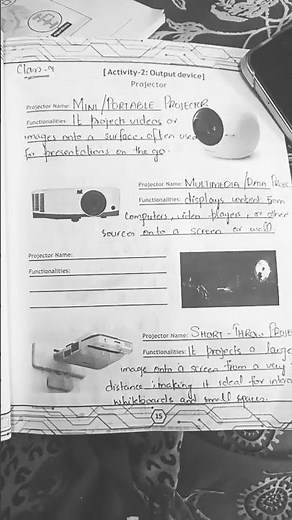 Class-4
[Activity-2: Output device]
Projector
Projector Name: MINI/PORTABLE PROJECTOR
Functionalities: It projects videos or
images onto a surface, often used
for presentations on the go.
Projector Name: MULTIMEDIA/DATA PROJEC
Functionalities: displays content from
computers, video players, or other
sources onto a screen or wall.
Projector Name:
Functionalities:
Projector Name: SHORT-THROW PROJE
Functionalities: It projects a large
image onto a screen from a very
distance, making it ideal for intera
whiteboards and small spaces.
15